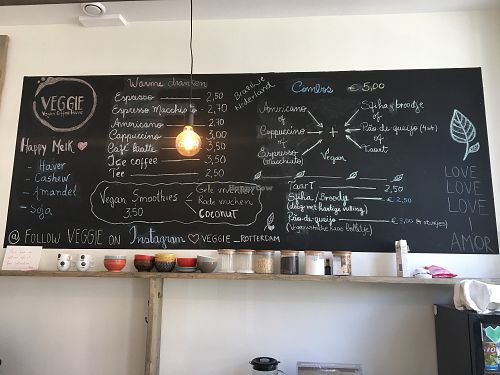 VEGGIE
Vegan Coffee House
Happy Melk
- Haver
- Cashew
- Amandel
- Soja
Warme dranken
Espresso 2,50
Espresso Macchiato 2,70
Americano 2,70
Cappuccino 3,00
Café latte 3,50
Ice coffee 3,50
Tee 2,50
Vegan Smoothies
3,50
Gele vruchten
Rode vruchten
COCONUT
Nederland
Combos €5,00
Americano
of
Cappuccino
of
Espresso
(macchiato)
+
Vegan
Sfiha/broodje
of
Pão de queijo (4 st)
of
Taart
Taart 2,50
Sfiha/Broodje € 2,50
(deeg met hartige vulling)
Pão-de-queijo € 3,00
LOVE
LOVE
LOVE
AMOR
@ FOLLOW VEGGIE ON Instagram VEGGIE_ROTTERDAM